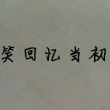 笑回忆当初